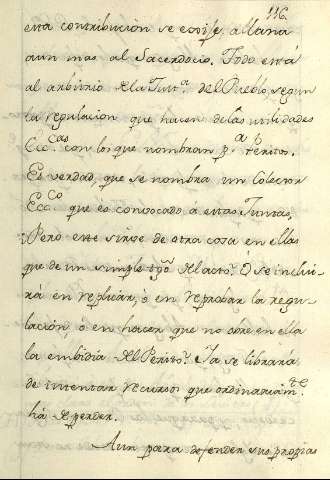 116.
esta contribucion se exije allana
aun mas al Sacerdocio. Todo está
al arbitrio de la Junt.ª del Pueblo, segun
la regulacion que hacen de las utilidades
Ecc.cas con los que nombran p.ª Peritos.
Es verdad, que se nombra un Colector
Ecc.co que es convocado á estas Juntas,
¿Pero este sirve de otra cosa en ellas
que de un simple tgo del acto? O se inclui-
rá en replicar, ó en reprobar la regu-
lacion, ó en hacer que no obre en ella
la embidia del Perito? Ya se librará
de intentar recursos que ordinariam.te
há de perder.
Aun para defender sus propias